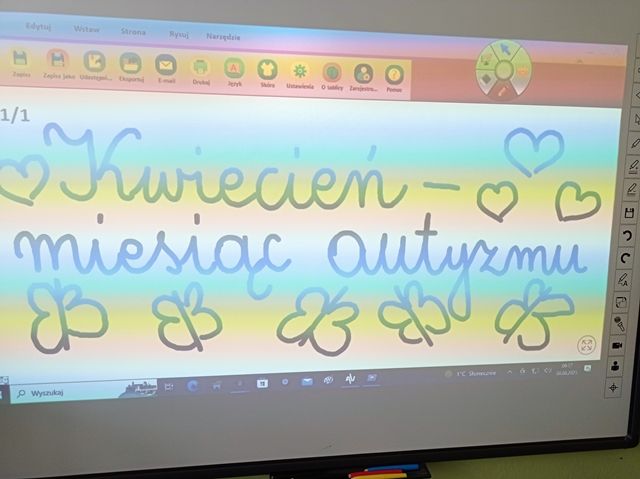 Edytuj Wstaw Strona Rysuj Narzędzie
Zapisz Zapisz jako Udostępni... Eksportuj E-mail Drukuj Język Skóra Ustawienia O tablicy Zarejestro... Pomoc
1/1
Kwiecień -
miesiąc autyzmu
Wyszukaj
1°C Słonecznie